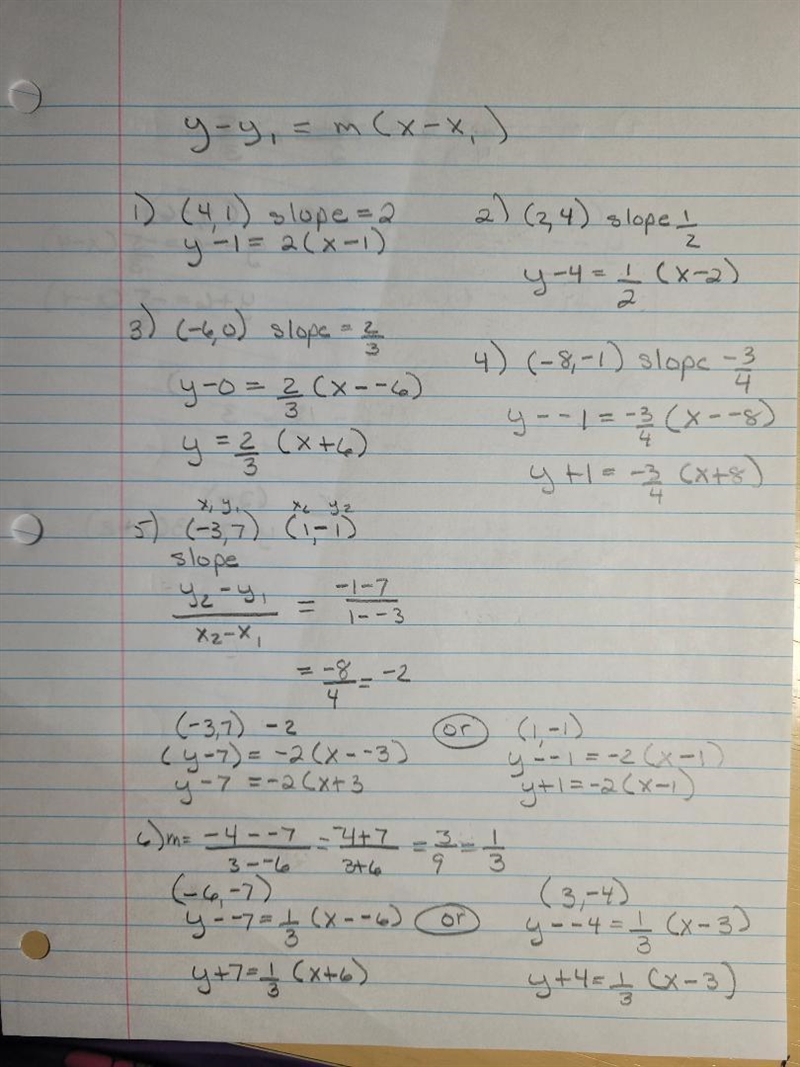 y-y₁ = m(x-x₁)
1) (4,1) slope = 2
y-1 = 2(x-1)
2) (2,4) slope 1/2
y-4 = 1/2 (x-2)
3) (-6,0) slope = 2/3
y-0 = 2/3 (x--6)
y = 2/3 (x+6)
4) (-8,-1) slope -3/4
y--1 = -3/4 (x--8)
y+1 = -3/4 (x+8)
x₁ y₁ x₂ y₂
5) (-3,7) (1,-1)
slope
y₂-y₁/x₂-x₁ = -1-7/1--3
= -8/4 = -2
(-3,7) -2 or (1,-1)
(y-7) = -2(x--3)
y-7 = -2(x+3
y--1 = -2(x-1)
y+1 = -2(x-1)
6) m = -4--7/3--6 = -4+7/3+6 = 3/9 = 1/3
(-6,-7)
y--7 = 1/3 (x--6) or
y+7 = 1/3 (x+6)
(3,-4)
y--4 = 1/3 (x-3)
y+4 = 1/3 (x-3)